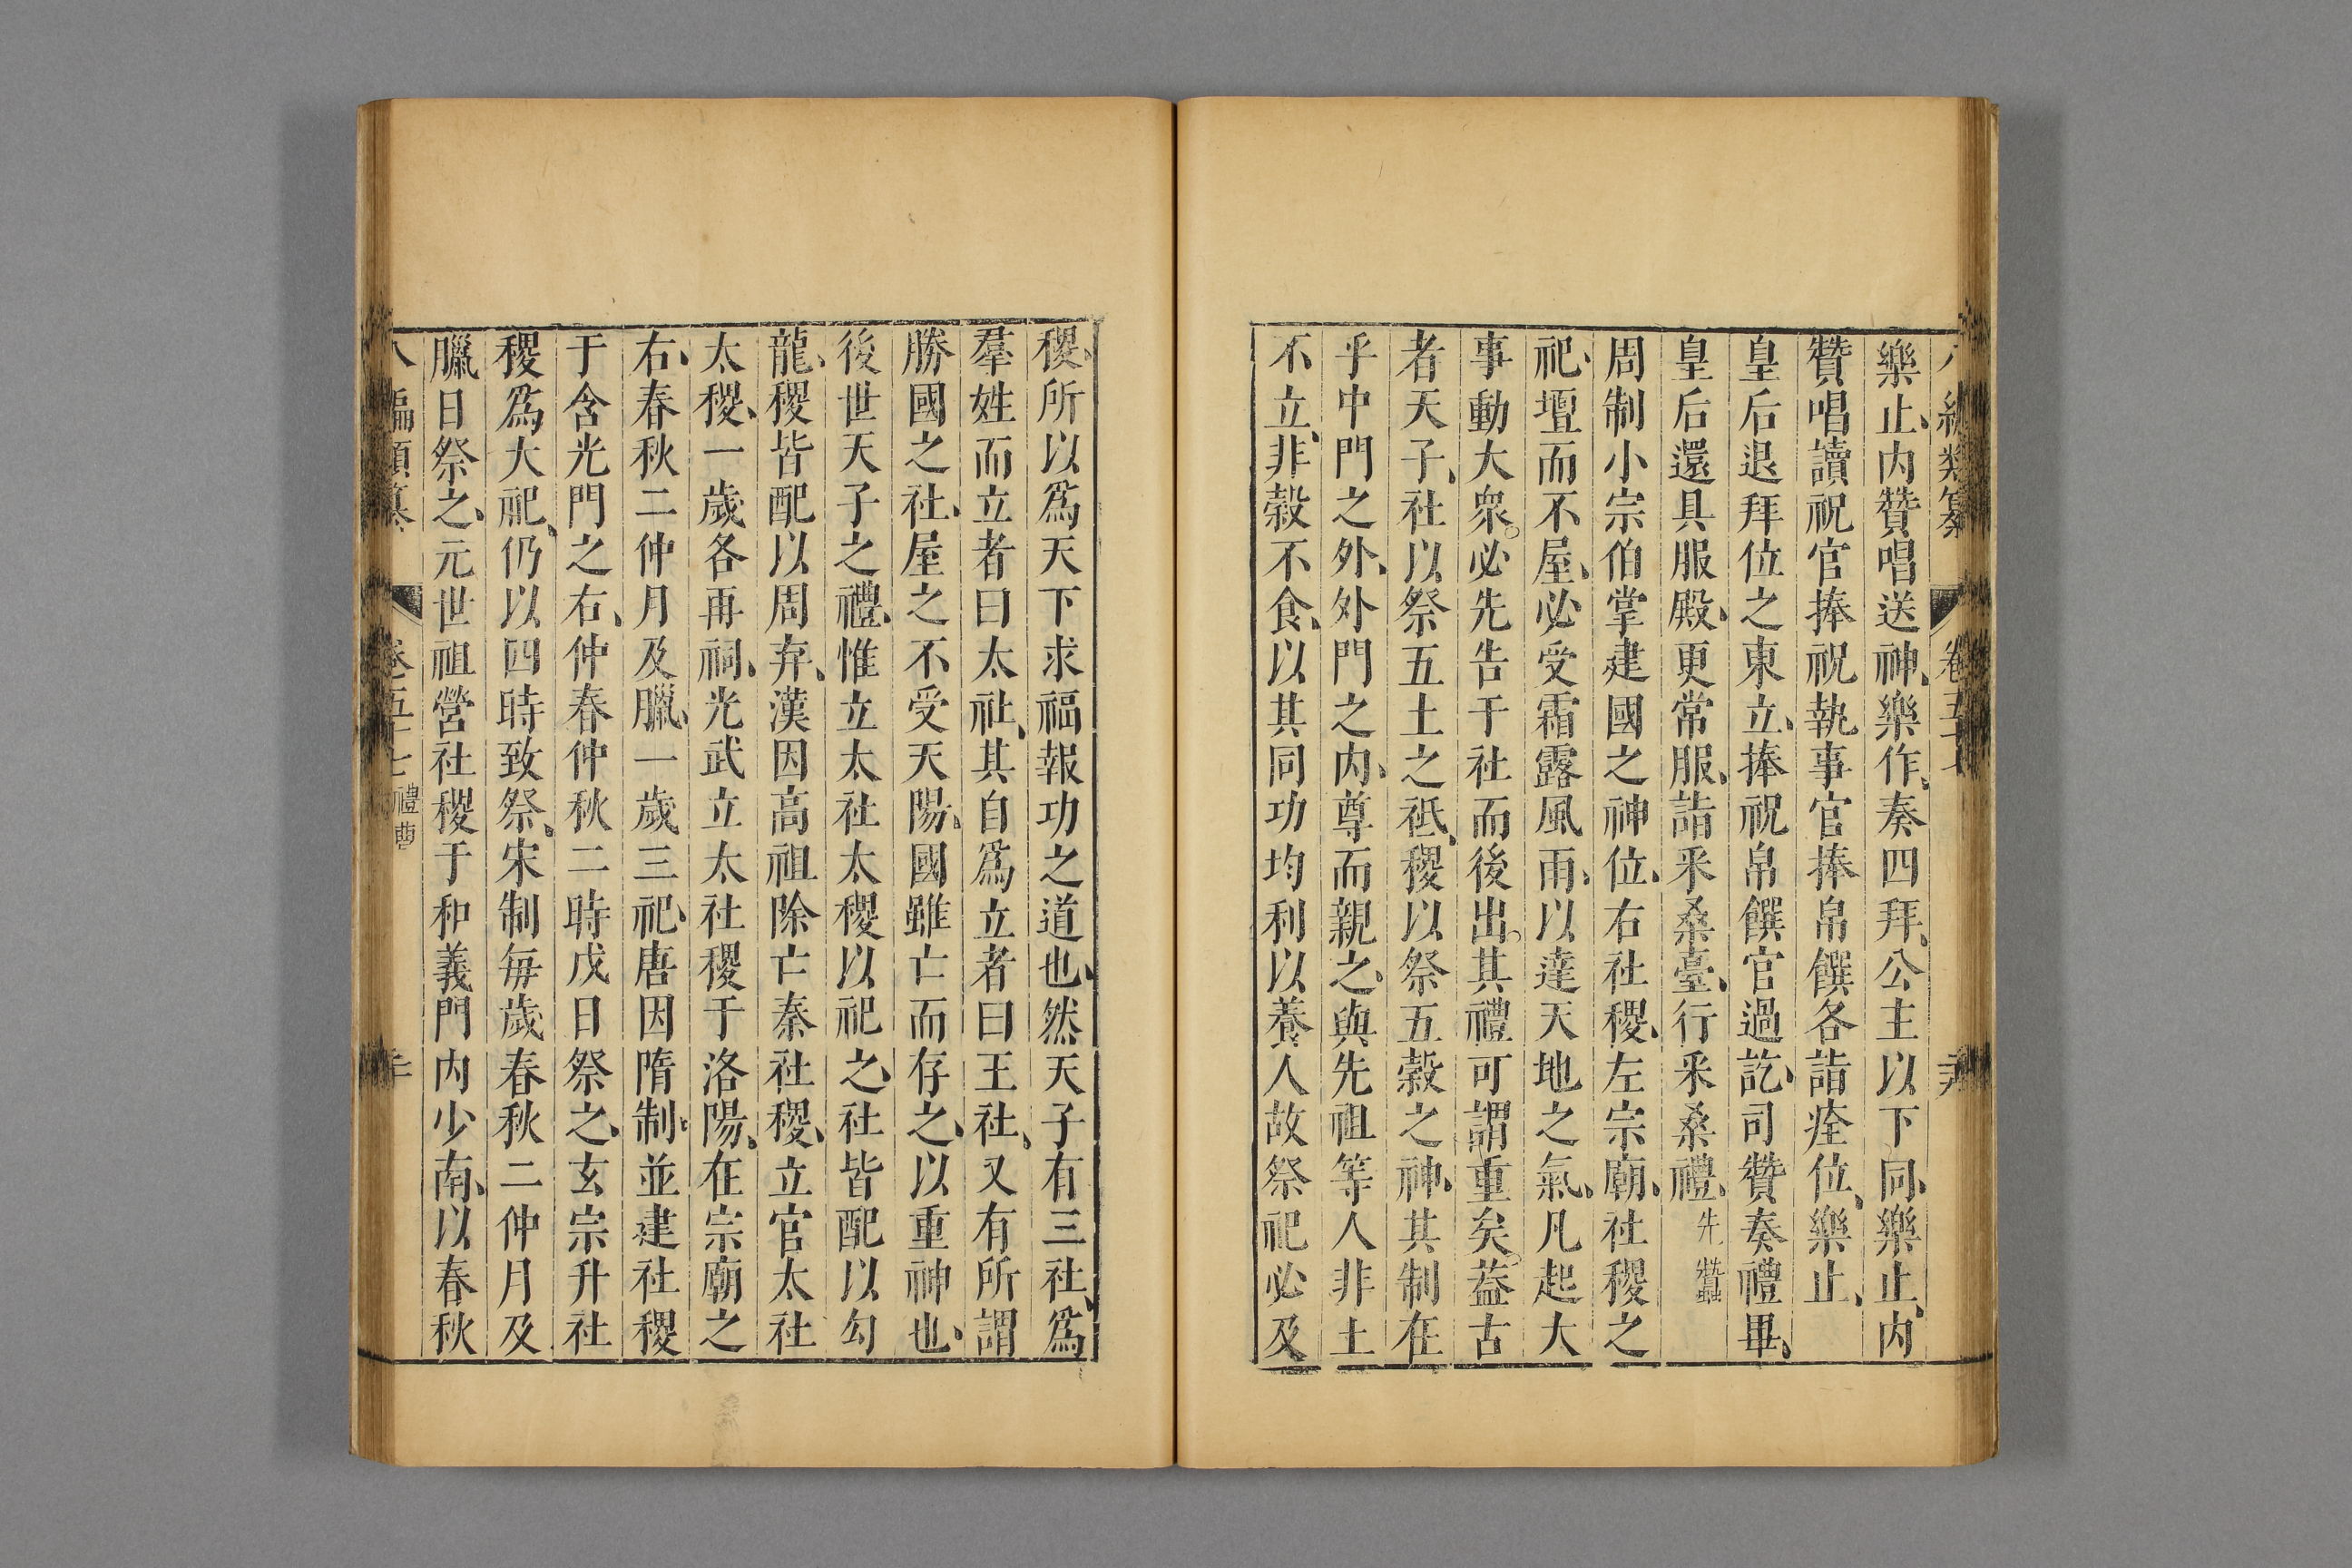 樂止、内贊唱送神、樂作、奏四拜、公主以下同、樂止、内
贊唱讀祝官捧祝執事官捧帛饌各詣瘞位、樂止、
皇后退拜位之東立、捧祝帛饌官過訖、司贊奏禮畢、
皇后還具服殿、更常服、詣采桑臺、行采桑禮、先蠶
周制小宗伯掌建國之神位、右社稷、左宗廟、社稷之
祀、壇而不屋、必受霜露風雨、以達天地之氣、凡起大
事動大衆。必先告于社而後出。其禮可謂重矣。葢古
者天子、社以祭五土之祗、稷以祭五榖之神、其制在
乎中門之外、外門之内、尊而親之、與先祖等人非土
不立、非榖不食、以其同功均利以養人故祭祀必及
稷、所以爲天下求福報功之道也、然天子有三社、爲
羣姓而立者曰太社、其自爲立者曰王社、又有所謂
勝國之社、屋之不受天陽、國雖亡而存之、以重神也、
後世天子之禮、惟立太社太稷以祀之、社皆配以勾
龍、稷皆配以周弃、漢因高祖除亡秦社稷、立官太社
太稷、一歲各再祠、光武立太社稷于洛陽、在宗廟之
右、春秋二仲月及臘、一歲三祀、唐因隋制、並建社稷
于含光門之右、仲春仲秋二時戊日祭之、玄宗升社
稷爲大祀、仍以四時致祭、宋制每歲春秋二仲月及
臘日祭之、元世祖營社稷于和義門内少南、以春秋
八編類纂 卷五十七 禮典